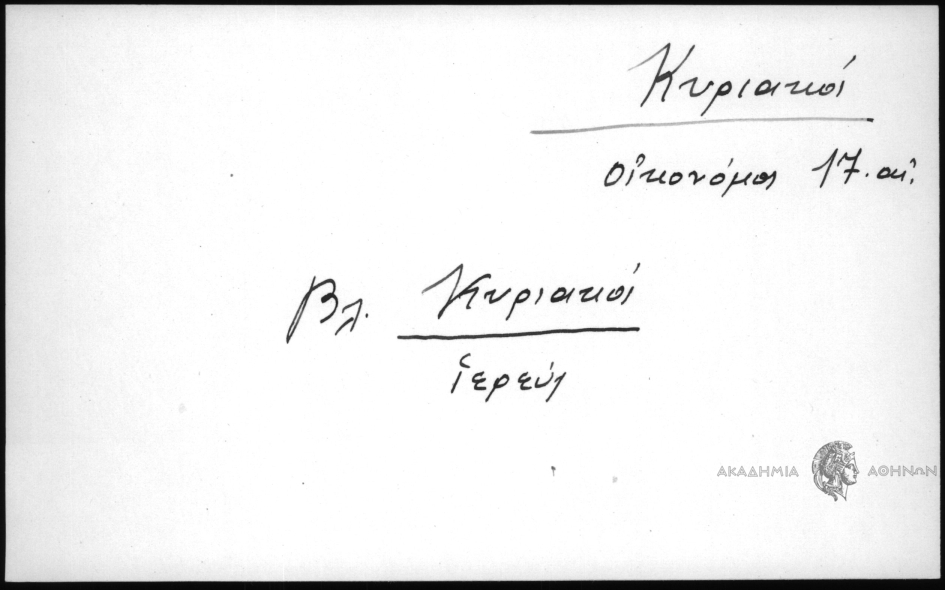 Κυριακός
οἰκονόμος 17. αἰ.
Βλ. Κυριακός
ἱερεύς
ΑΚΑΔΗΜΙΑ ΑΘΗΝΩΝ